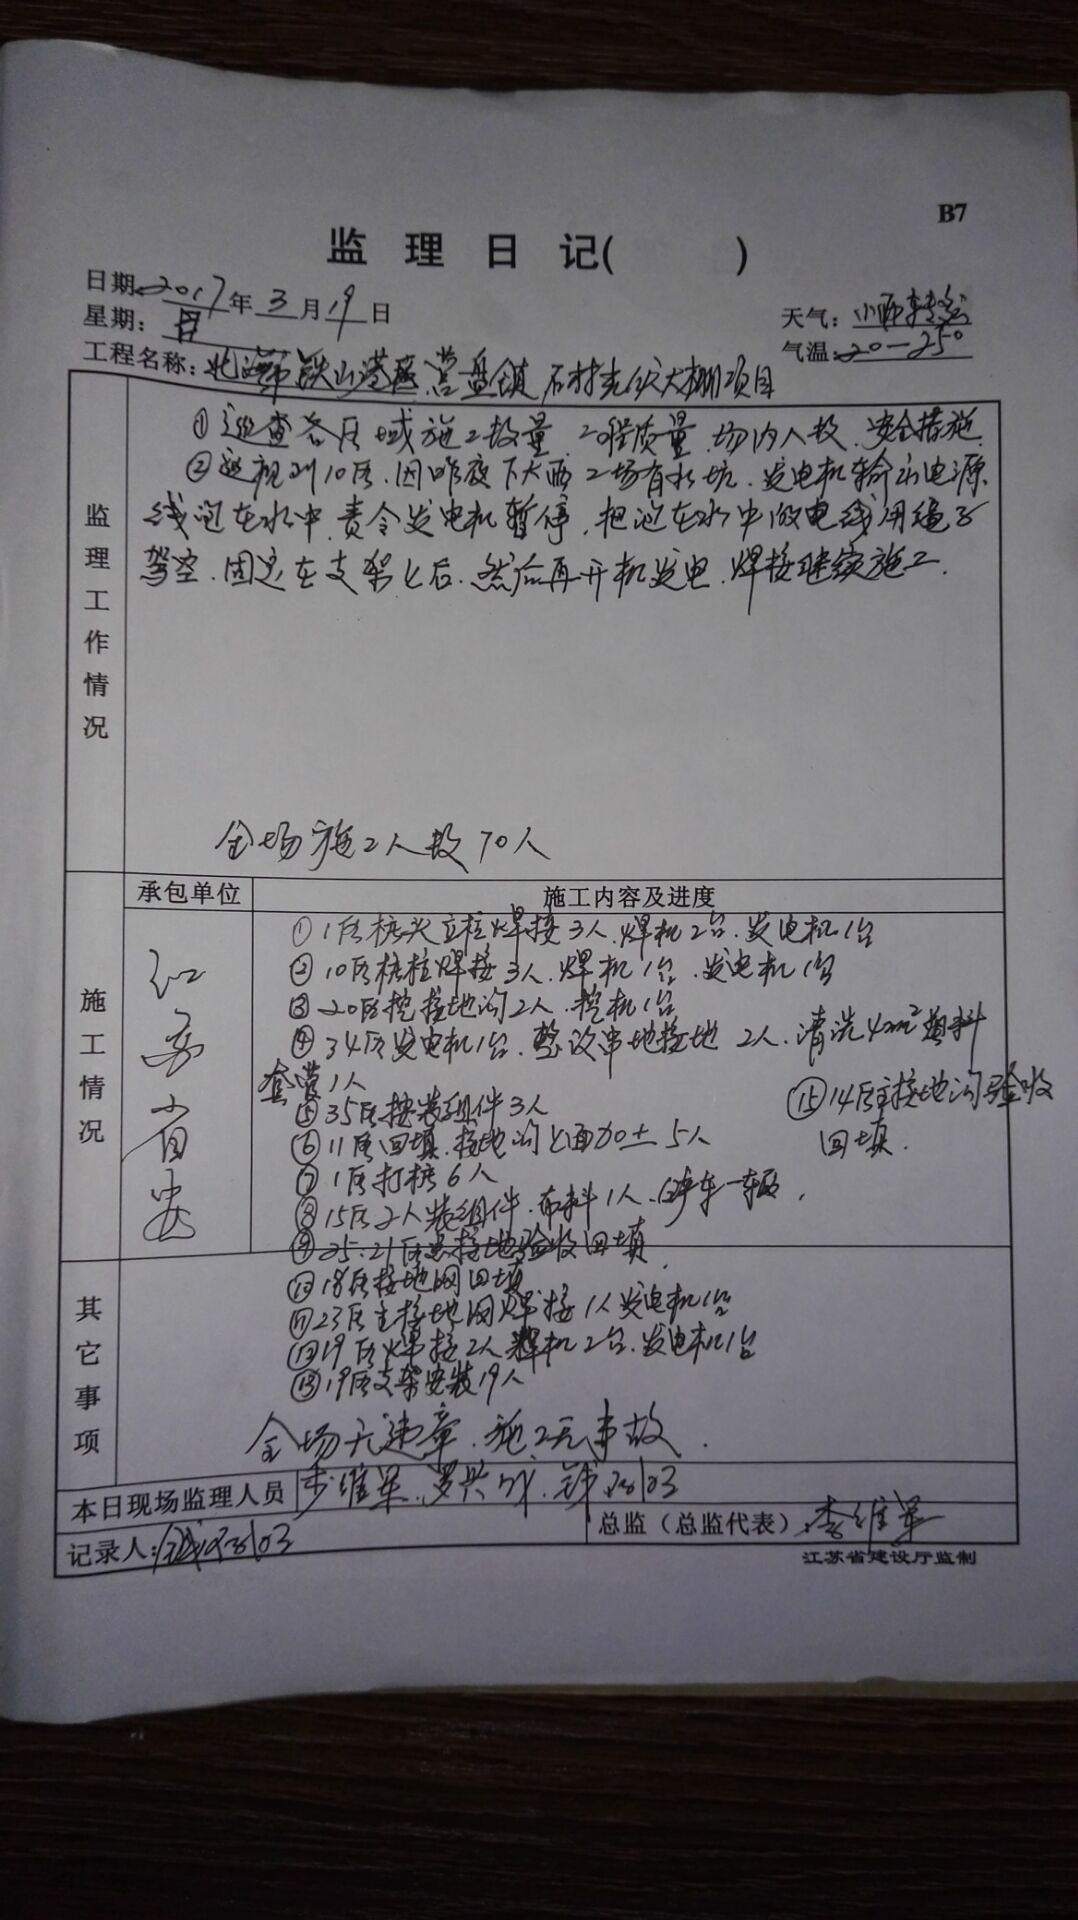 B7
监 理 日 记( )
日期: 2017年3月19日
星期: 日
天气: 小雨转
气温: 20-25°
工程名称: 北海市铁山港区营盘镇 石村光伏大棚项目
监理工作情况
①巡查各区域施工数量.工程质量.场内人数.安全措施.
②巡视到10区.因昨夜下大雨工场有水坑.发电机输出电源
线泡在水中.责令发电机暂停.把泡在水中的电线用绳子
驾空.固定在支架上后.然后再开机发电.焊接继续施工.
全场施工人数70人
施工情况
承包单位
施工内容及进度
江苏省
①1区桩头立柱焊接3人.焊机2台.发电机1台
②10区桩柱焊接3人.焊机1台.发电机1台
③20区挖接地沟2人.挖机1台
④34区发电机1台.整改串地接地2人.清洗4m²
套管1人
⑤35区按装组件3人
⑮14区主接地沟验收
回填.
⑥11区回填.接地沟上面加土5人
⑦1区打桩6人
⑧15区2人装组件.布料1人.
⑨25.21区 接地验收回填.
⑩18区接地网回填
⑪23区主接地网焊接1人发电机1台
19区焊接2人焊机2台.发电机1台
⑬19区支架安装19人
其它事项
全场无违章.施工无事故.
本日现场监理人员 李维军.罗兴成.
记录人:
总监（总监代表）: 李维军
江苏省建设厅监制